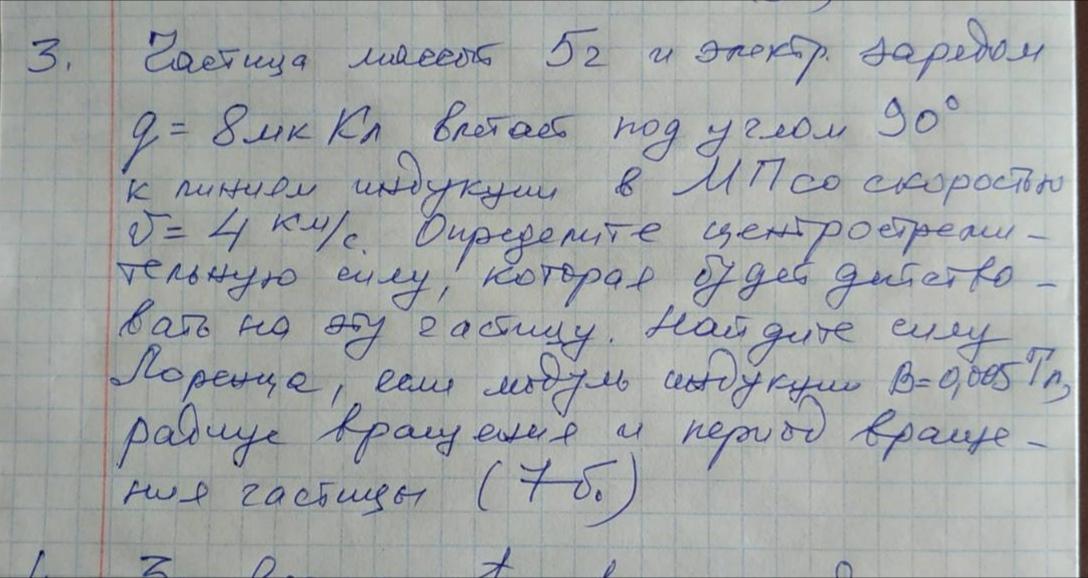 3. Частица массой 5г и электр. зарядом
q = 8мкКл влетает под углом 90°
к линиям индукции в МП со скоростью
v = 4 км/с. Определите центростреми-
тельную силу, которая будет действо-
вать на эту частицу. Найдите силу
Лоренца, если модуль индукции B=0,005Тл,
радиус вращения и период враще-
ния частицы (7б.)